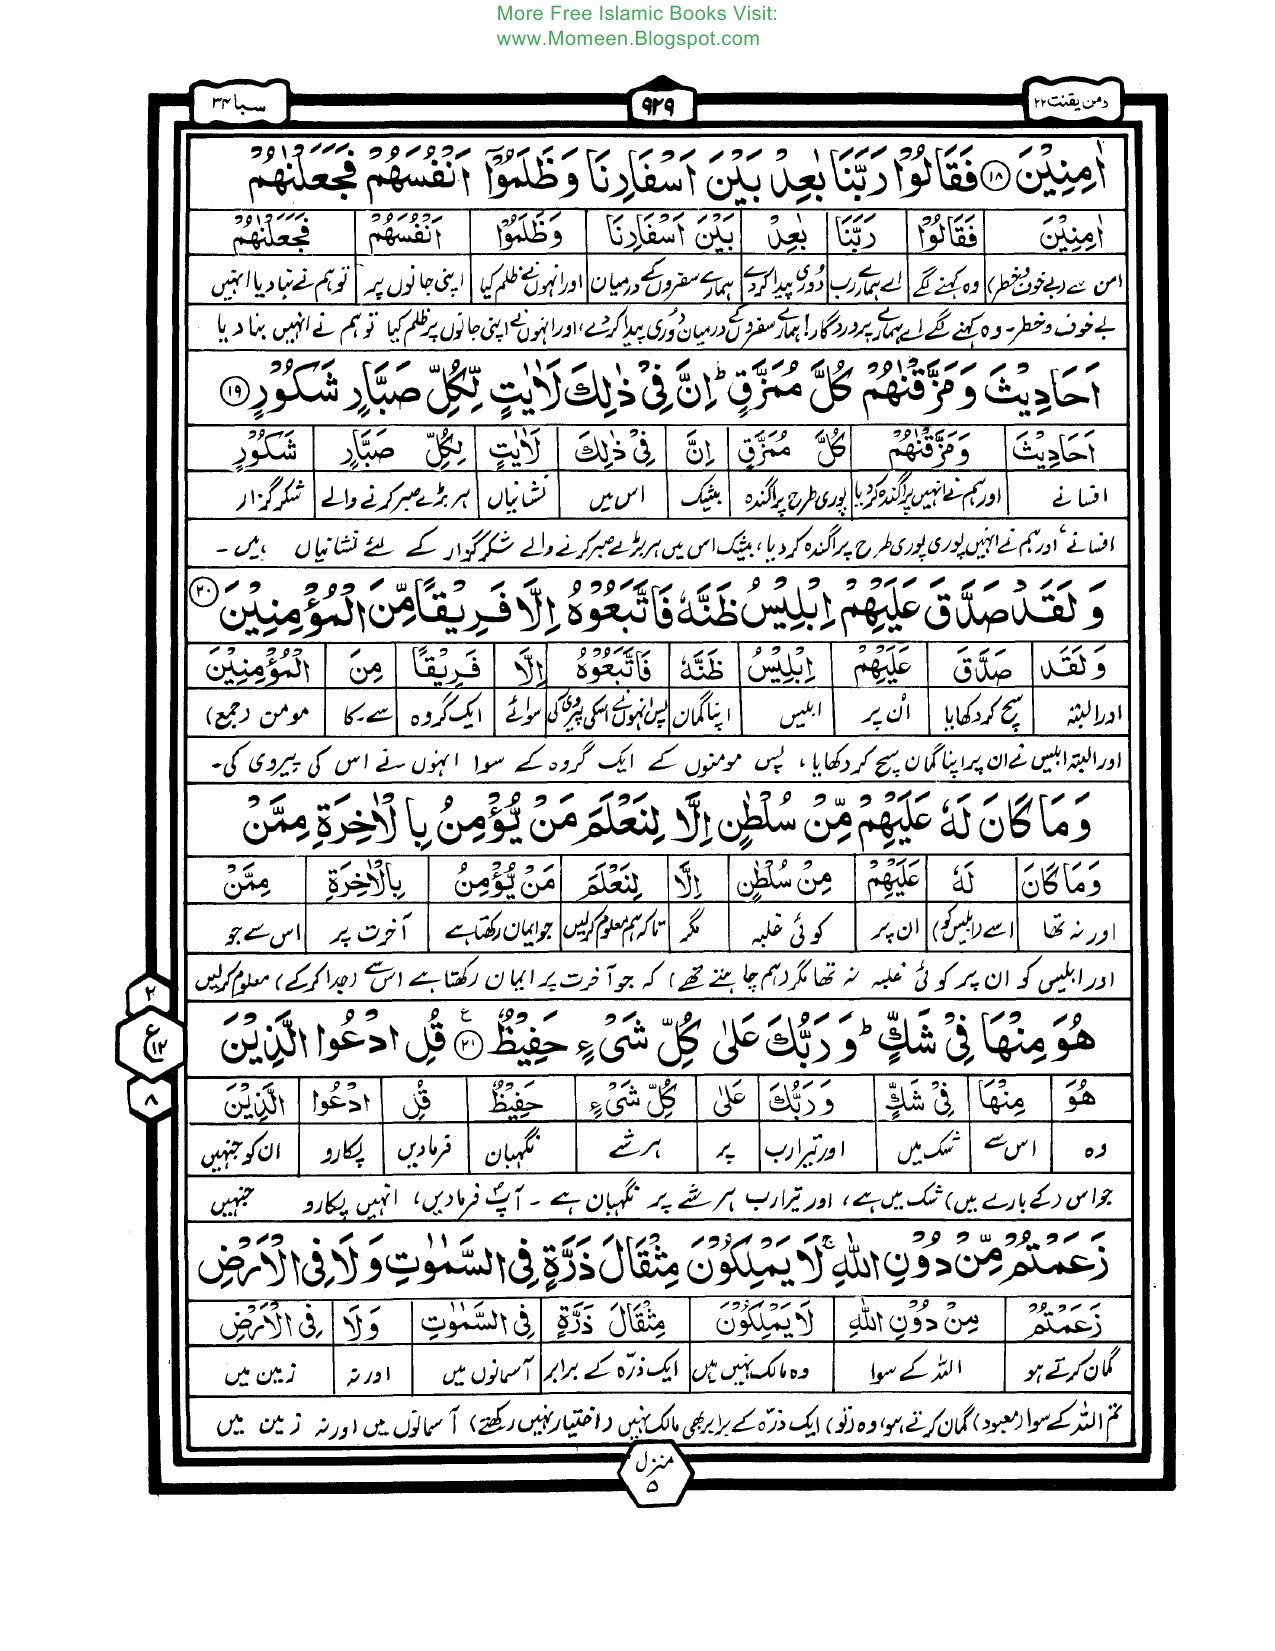 More Free Islamic Books Visit:
www.Momeen.Blogspot.com
ومن یقنت ۲۲
۹۲۹
سبا ۳۴
اٰمِنِيْنَ ۱۸ فَقَالُوْا رَبَّنَا بٰعِدْ بَيْنَ اَسْفَارِنَا وَظَلَمُوْۤا اَنْفُسَهُمْ فَجَعَلْنٰهُمْ
اٰمِنِيْنَ فَقَالُوْا رَبَّنَا بٰعِدْ بَيْنَ اَسْفَارِنَا وَظَلَمُوْۤا اَنْفُسَهُمْ فَجَعَلْنٰهُمْ
امن سے (بے خوف وخطر) وہ کہنے لگے اے ہمارے رب دُوری پیدا کردے ہمارے سفروں کے درمیان اور انہوں نے ظلم کیا اپنی جانوں پر تو ہم نے بنا دیا انہیں
بے خوف وخطر۔ وہ کہنے لگے اے ہمارے پروردگار! ہمارے سفروں کے درمیان دُوری پیدا کردے، اور انہوں نے اپنی جانوں پر ظلم کیا تو ہم نے انہیں بنا دیا
اَحَادِيْثَ وَمَزَّقْنٰهُمْ كُلَّ مُمَزَّقٍ ؕ اِنَّ فِيْ ذٰلِكَ لَاٰيٰتٍ لِّكُلِّ صَبَّارٍ شَكُوْرٍ ۱۹
اَحَادِيْثَ وَمَزَّقْنٰهُمْ كُلَّ مُمَزَّقٍ اِنَّ فِيْ ذٰلِكَ لَاٰيٰتٍ لِكُلِّ صَبَّارٍ شَكُوْرٍ
افسانے اور ہم نے انہیں پراگندہ کردیا پوری طرح پراگندہ بیشک اس میں نشانیاں ہر بڑے صبر کرنے والے شکر گزار
افسانے، اور ہم نے انہیں پوری پوری طرح پراگندہ کردیا، بیشک اس میں ہر بڑے صبر کرنے والے شکر گزار کے لئے نشانیاں ہیں۔
وَلَقَدْ صَدَّقَ عَلَيْهِمْ اِبْلِيْسُ ظَنَّهٗ فَاتَّبَعُوْهُ اِلَّا فَرِيْقًا مِّنَ الْمُؤْمِنِيْنَ ۲۰
وَلَقَدْ صَدَّقَ عَلَيْهِمْ اِبْلِيْسُ ظَنَّهٗ فَاتَّبَعُوْهُ اِلَّا فَرِيْقًا مِنَ الْمُؤْمِنِيْنَ
اور البتہ سچ کر دکھایا اُن پر ابلیس اپنا گمان پس انہوں نے اسکی پیروی کی سوائے ایک گروہ سے۔کا مومن (جمع)
اور البتہ ابلیس نے ان پر اپنا گمان سچ کر دکھایا، پس مومنوں کے ایک گروہ کے سوا انہوں نے اس کی پیروی کی۔
وَمَا كَانَ لَهٗ عَلَيْهِمْ مِّنْ سُلْطٰنٍ اِلَّا لِنَعْلَمَ مَنْ يُّؤْمِنُ بِالْاٰخِرَةِ مِمَّنْ
وَمَا كَانَ لَهٗ عَلَيْهِمْ مِنْ سُلْطٰنٍ اِلَّا لِنَعْلَمَ مَنْ يُّؤْمِنُ بِالْاٰخِرَةِ مِمَّنْ
اور نہ تھا اسے (ابلیس کو) ان پر کوئی غلبہ مگر تاکہ ہم معلوم کرلیں جو ایمان رکھتا ہے آخرت پر اس سے جو
اور ابلیس کو ان پر کوئی غلبہ نہ تھا مگر (ہم چاہتے تھے) کہ جو آخرت پر ایمان رکھتا ہے اسے (جدا کرکے) معلوم کرلیں
۲
ع ۱۲
۸
هُوَ مِنْهَا فِيْ شَكٍّ ؕ وَرَبُّكَ عَلٰى كُلِّ شَيْءٍ حَفِيْظٌ ۲۱ قُلِ ادْعُوا الَّذِيْنَ
هُوَ مِنْهَا فِيْ شَكٍّ وَرَبُّكَ عَلٰى كُلِّ شَيْءٍ حَفِيْظٌ قُلِ ادْعُوا الَّذِيْنَ
وہ اس سے شک میں اور تیرا رب پر ہر شے نگہبان فرمادیں پکارو ان کو جنہیں
جو اس (کے بارے میں) شک میں ہے، اور تیرا رب ہر شے پر نگہبان ہے۔ آپؐ فرمادیں، انہیں پکارو جنہیں
زَعَمْتُمْ مِّنْ دُوْنِ اللّٰهِ ۚ لَا يَمْلِكُوْنَ مِثْقَالَ ذَرَّةٍ فِي السَّمٰوٰتِ وَلَا فِي الْاَرْضِ
زَعَمْتُمْ مِنْ دُوْنِ اللّٰهِ لَا يَمْلِكُوْنَ مِثْقَالَ ذَرَّةٍ فِي السَّمٰوٰتِ وَلَا فِي الْاَرْضِ
گمان کرتے ہو اللہ کے سوا وہ مالک نہیں ہیں ایک ذرّہ کے برابر آسمانوں میں اور نہ زمین میں
تم اللہ کے سوا (معبود) گمان کرتے ہو، وہ (تو) ایک ذرّہ کے برابر بھی مالک نہیں (اختیار نہیں رکھتے) آسمانوں میں اور نہ زمین میں
منزل
۵